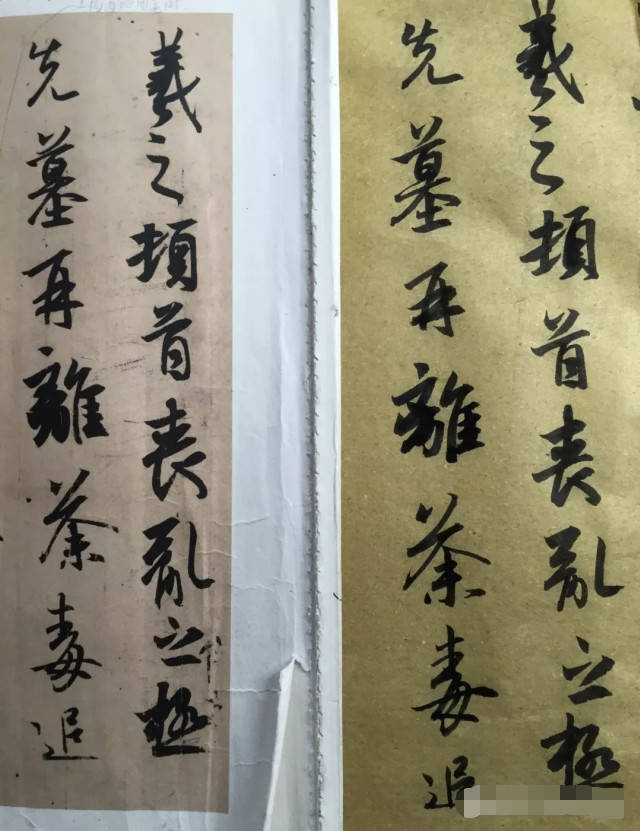 羲之頓首喪亂之極
先墓再離荼毒追
羲之頓首喪亂之極
先墓再離荼毒追